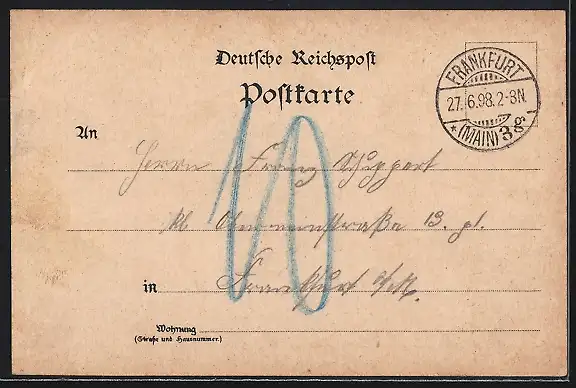 Deutsche Reichspost
Postkarte
FRANKFURT
27. 6.98. 2-3N.
* (MAIN) 3 g.
10
An Herrn Franz Schuppert
kl. Obermainstraße 13. pt.
in Frankfurt a/M.
Wohnung
(Straße und Hausnummer.)